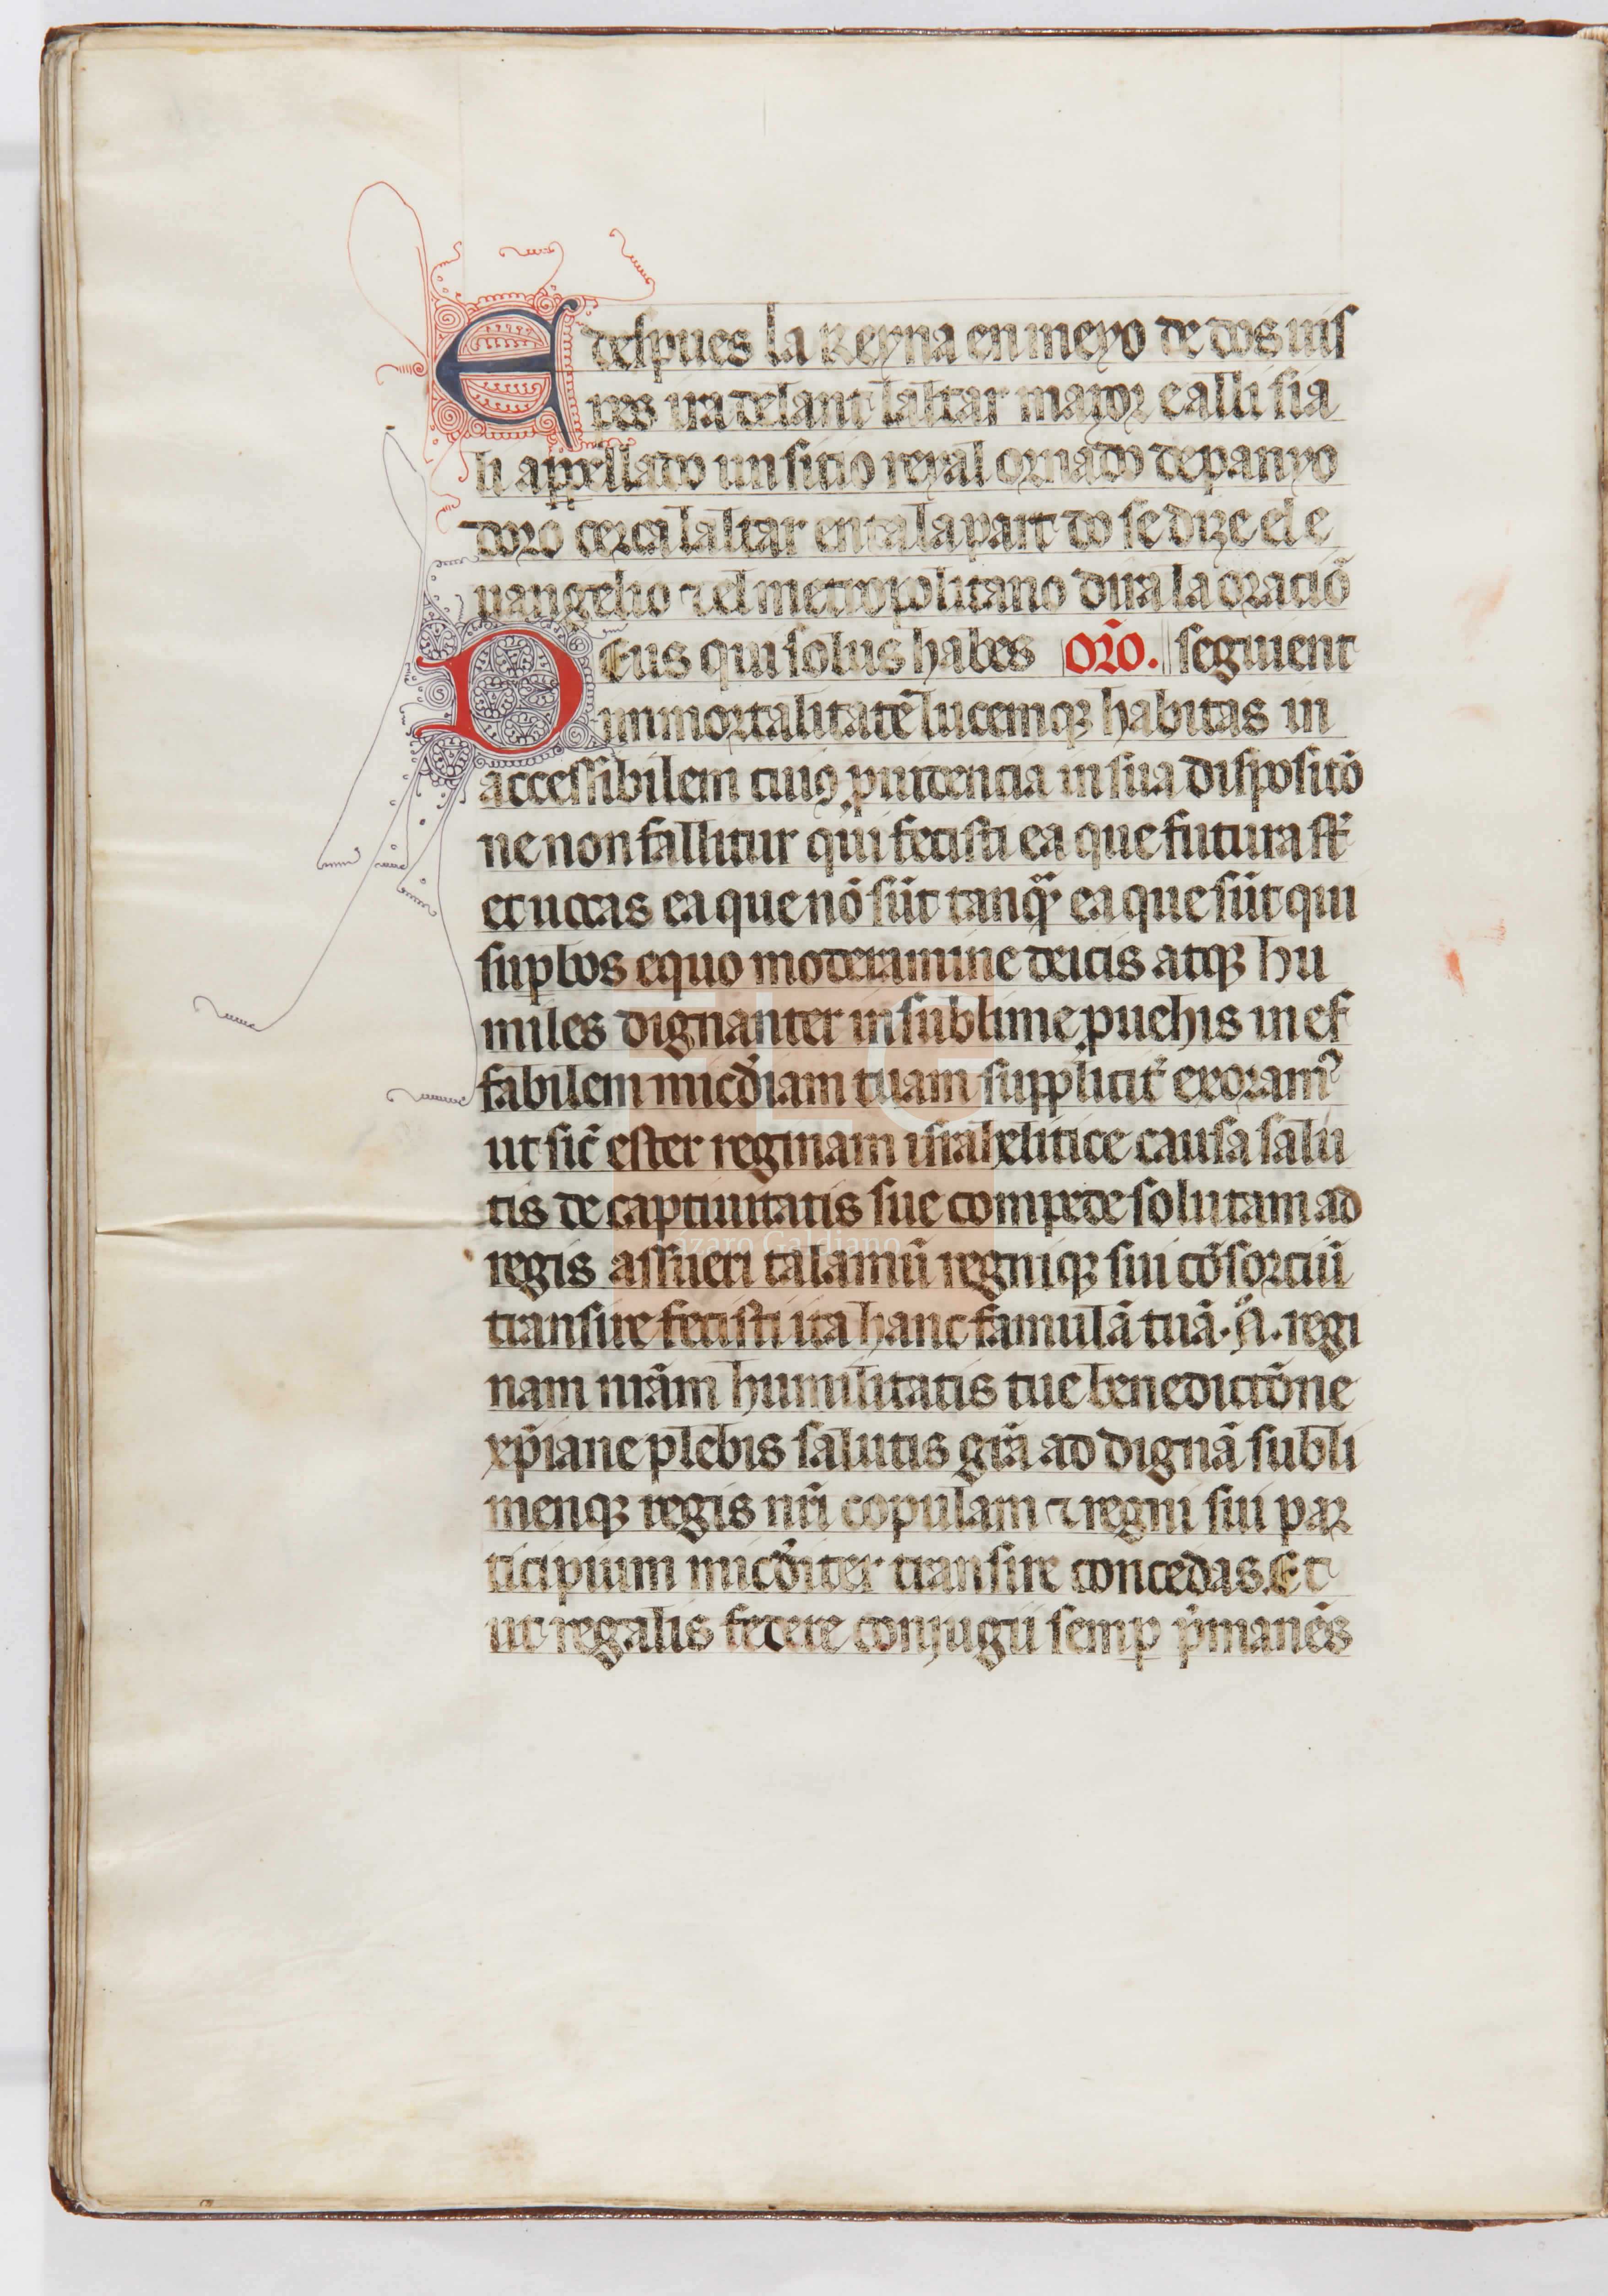 E despues la Reyna en meyo de dos uis
pes ira delant laltar mayor e alli sia
li appellado un sitio reyal ornado de panyo
doro cerca laltar en tala part do se dize el e
uangelio ⁊ el metropolitano dira la oraciō
DEus qui solus habes orō. seguient
immortalitatē lucemqꝫ habitas in
accessibilem cuiꝯ ꝓuidencia in sua dispositō
ne non fallitur qui fecisti ea que futura sť
et uocas ea que nō sūt tanqͣꝫ ea que sūt qui
suꝑbos equo moderamine deicis atqꝫ hu
miles dignanter in sublime ꝓuehis in ef
fabilem mīcdiam tuam suppliciť exoramꝰ
ut sič ester reginam israhelitice causa salu
tis de captiuitatis sue compede solutam ad
regis assueri talamū regniqꝫ sui cōsorciū
transire fecisti ita hanc famulā tuā. N̄. regi
nam nrām humilitatis tue benedictōne
xp̄iane plebis salutis grā ad dignā subli
menqꝫ regis nrī copulam ⁊ regni sui par
ticipium mīcditer transire concedas. Et
ut regalis federe conjugii semꝑ ꝑmanēs
Lázaro Galdiano